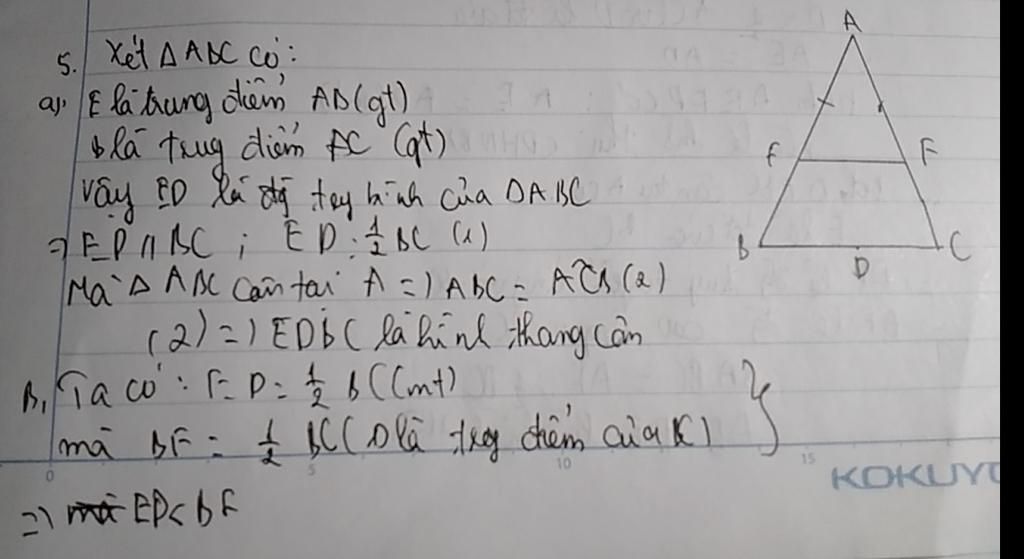 5. Xét △ABC có:
a, E là trung điểm AB (gt)
D là trug điểm AC (gt)
Vậy ED là đg tug bình của △ABC
=> ED // BC ; ED = 1/2 BC (1)
Mà △ ABC cân tại A => ABC = ACB (2)
(2) => EDBC là hình thang cân
B, Ta có : ED = 1/2 BC (cmt)
mà BF = 1/2 BC ( D là trug điểm của BC ) }
=> ED < BF
A
F
F
B
D
C
0
5
10
15
KOKUYO